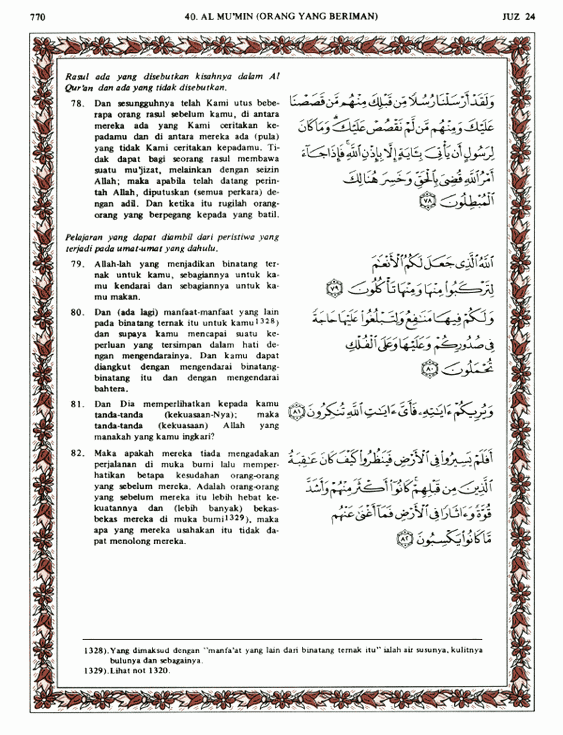 770 40. AL MU'MIN (ORANG YANG BERIMAN) JUZ 24
Rasul ada yang disebutkan kisahnya dalam Al
Qur'an dan ada yang tidak disebutkan.
78. Dan sesungguhnya telah Kami utus bebe-
rapa orang rasul sebelum kamu, di antara
mereka ada yang Kami ceritakan ke-
padamu dan di antara mereka ada (pula)
yang tidak Kami ceritakan kepadamu. Ti-
dak dapat bagi seorang rasul membawa
suatu mu'jizat, melainkan dengan seizin
Allah; maka apabila telah datang perin-
tah Allah, diputuskan (semua perkara) de-
ngan adil. Dan ketika itu rugilah orang-
orang yang berpegang kepada yang batil.
وَلَقَدْ أَرْسَلْنَا رُسُلًا مِّن قَبْلِكَ مِنْهُم مَّن قَصَصْنَا
عَلَيْكَ وَمِنْهُم مَّن لَّمْ نَقْصُصْ عَلَيْكَ ۗ وَمَا كَانَ
لِرَسُولٍ أَن يَأْتِيَ بِـَٔايَةٍ إِلَّا بِإِذْنِ اللَّهِ ۚ فَإِذَا جَاءَ
أَمْرُ اللَّهِ قُضِيَ بِالْحَقِّ وَخَسِرَ هُنَالِكَ
الْمُبْطِلُونَ ٧٨
Pelajaran yang dapat diambil dari peristiwa yang
terjadi pada umat-umat yang dahulu.
79. Allah-lah yang menjadikan binatang ter-
nak untuk kamu, sebagiannya untuk ka-
mu kendarai dan sebagiannya untuk ka-
mu makan.
اللَّهُ الَّذِي جَعَلَ لَكُمُ الْأَنْعَٰمَ
لِتَرْكَبُوا مِنْهَا وَمِنْهَا تَأْكُلُونَ ٧٩
80. Dan (ada lagi) manfaat-manfaat yang lain
pada binatang ternak itu untuk kamu1328)
dan supaya kamu mencapai suatu ke-
perluan yang tersimpan dalam hati de-
ngan mengendarainya. Dan kamu dapat
diangkut dengan mengendarai binatang-
binatang itu dan dengan mengendarai
bahtera.
وَلَكُمْ فِيهَا مَنَٰفِعُ وَلِتَبْلُغُوا عَلَيْهَا حَاجَةً
فِي صُدُورِكُمْ وَعَلَيْهَا وَعَلَى الْفُلْكِ
تُحْمَلُونَ ٨٠
81. Dan Dia memperlihatkan kepada kamu
tanda-tanda (kekuasaan-Nya); maka
tanda-tanda (kekuasaan) Allah yang
manakah yang kamu ingkari?
وَيُرِيكُمْ ءَايَٰتِهِ فَأَيَّ ءَايَٰتِ اللَّهِ تُنكِرُونَ ٨١
82. Maka apakah mereka tiada mengadakan
perjalanan di muka bumi lalu memper-
hatikan betapa kesudahan orang-orang
yang sebelum mereka. Adalah orang-orang
yang sebelum mereka itu lebih hebat ke-
kuatannya dan (lebih banyak) bekas-
bekas mereka di muka bumi1329), maka
apa yang mereka usahakan itu tidak da-
pat menolong mereka.
أَفَلَمْ يَسِيرُوا فِي الْأَرْضِ فَيَنظُرُوا كَيْفَ كَانَ عَٰقِبَةُ
الَّذِينَ مِن قَبْلِهِمْ ۚ كَانُوا أَكْثَرَ مِنْهُمْ وَأَشَدَّ
قُوَّةً وَءَاثَارًا فِي الْأَرْضِ فَمَا أَغْنَىٰ عَنْهُم
مَّا كَانُوا يَكْسِبُونَ ٨٢
1328).Yang dimaksud dengan "manfa'at yang lain dari binatang ternak itu" ialah air susunya, kulitnya
bulunya dan sebagainya.
1329).Lihat not 1320.